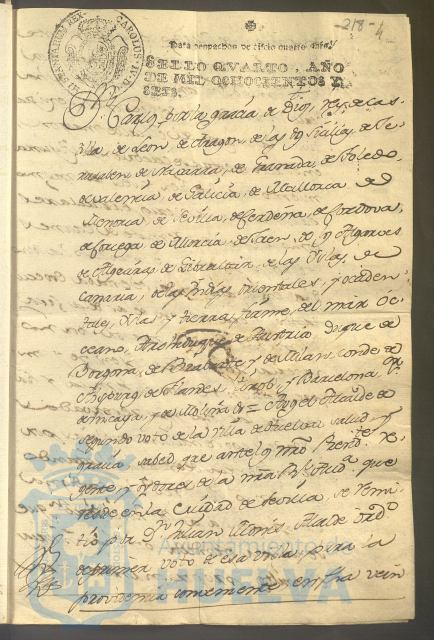 218-4
HISPANIARUM REX CAROLUS IV D G
Para despachos de oficio quatro mrs.
SELLO QVARTO, AÑO
DE MIL OCHOCIENTOS Y
SEIS.
Dn. Carlos por la gracia de Dios, Rey de Cas-
tilla, de Leon, de Aragon, de las dos Sicilias, de Je-
rusalen, de Navarra, de Granada, de Toledo,
de Valencia, de Galicia, de Mallorca, de
Menorca, de Sevilla, de Cerdeña, de Cordova,
de Corcega, de Murcia, de Jaen, de los Algarves
de Algeciras, de Gibraltar, de las Yslas de
Canaria, de las Yndias orientales, y occiden-
tales, Yslas y tierra firme, del mar Oc-
ceano, Archiduque de Austria, Duque de
Borgoña, de Brabante y de Milan, conde de
Abspurg, de Flandes, Tirol, y Barcelona, Sr.
de Vizcaya, y de Molina &a = A vos el Alcalde de
segundo voto de la Villa de Huelva salud y
gracia, sabed que ante el nro. Regente
y Oydores de la nra. Rl. Auda. que
reside en la Ciudad de Sevilla, se remi-
tió por Dn. Julian Alcalde
de primer voto de esa Villa para la
providencia conveniente en fha. vein
Ayuntamiento de
HUELVA